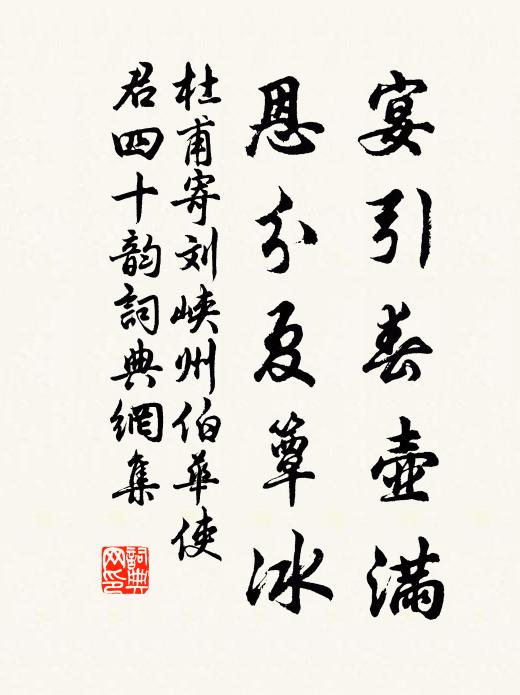 宴引春壺滿
恩分夏簟冰
杜甫寄刘峽州伯華使
君四十韵詞典網集
詞典網印